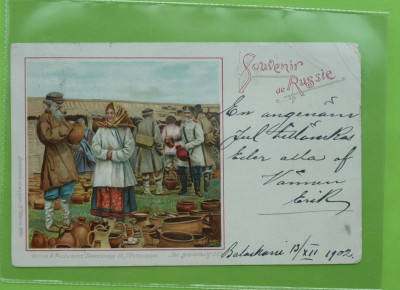 Souvenir
de Russie
En angenäm
Jul tillönskas
Eder alla af
Vännen
Erik
Balachani 13/XII 1902.